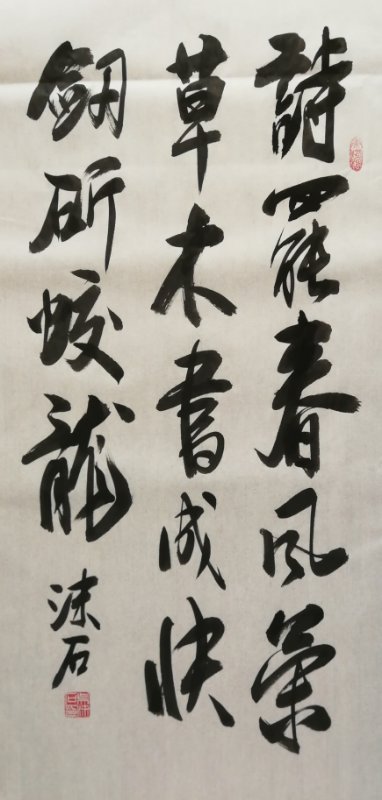 詩罷春風榮
草木書成快
劒斫蛟龍
沫石